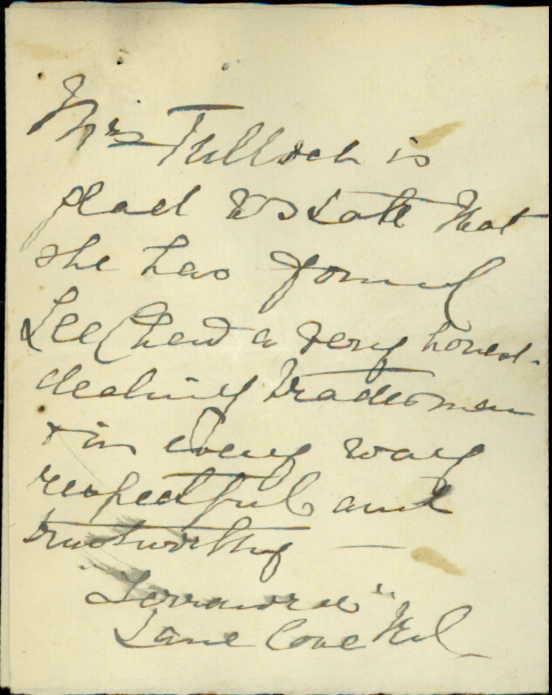 Mrs Tulloch is
glad to state that
she has found
Lee Chew a very honest-
dealing tradesman
+ in every way
respectful and
trustworthy —
Lane Cove Rd